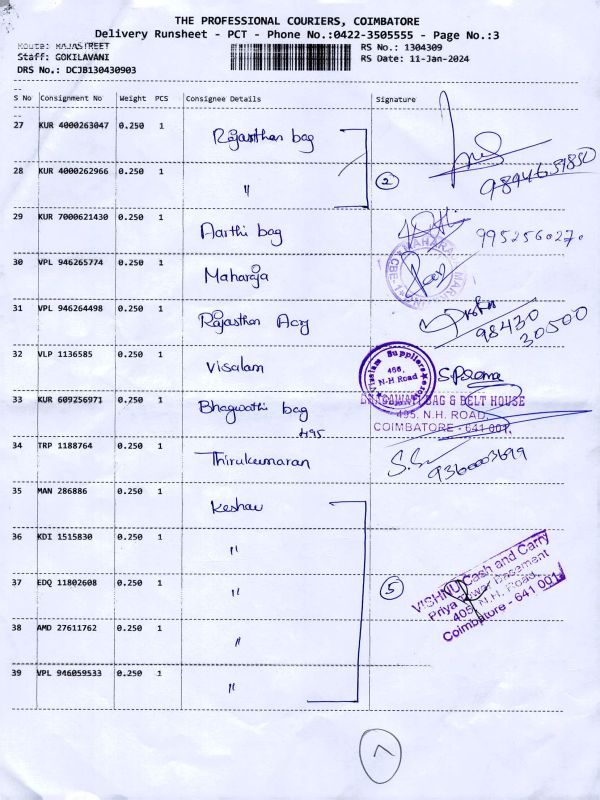 THE PROFESSIONAL COURIERS, COIMBATORE
Delivery Runsheet - PCT - Phone No.:0422-3505555 - Page No.:3
Route: RAJASTREET
RS No.: 1304309
Staff: GOKILAVANI
RS Date: 11-Jan-2024
DRS No.: DCJB130430903
S No Consignment No Weight PCS Consignee Details Signature
27 KUR 4000263047 0.250 1 Rajasthan bag
28 KUR 4000262966 0.250 1 " 2
9894651850
29 KUR 7000621430 0.250 1 Aarthi bag 995256027.
30 VPL 946265774 0.250 1 Maharaja
MAHARAJA
CBE-1
31 VPL 946264498 0.250 1 Rajasthan
98430
30500
32 VLP 1136585 0.250 1 Visalam
Visalam Suppliers
466,
N-H Road
33 KUR 609256971 0.250 1 Bhagwathi bag
495
BHAGAWATI BAG & BELT HOUSE
495. N.H. ROAD,
COIMBATORE - 641 001.
34 TRP 1188764 0.250 1 Thirukumaran
9360003699
35 MAN 286886 0.250 1 Keshav
36 KDI 1515830 0.250 1 "
37 EDQ 11802608 0.250 1 " 5
VISHNU Cash and Carry
Priya Tower Basement
405, N.H. Road,
Coimbatore - 641 001.
38 AMD 27611762 0.250 1 "
39 VPL 946059533 0.250 1 "